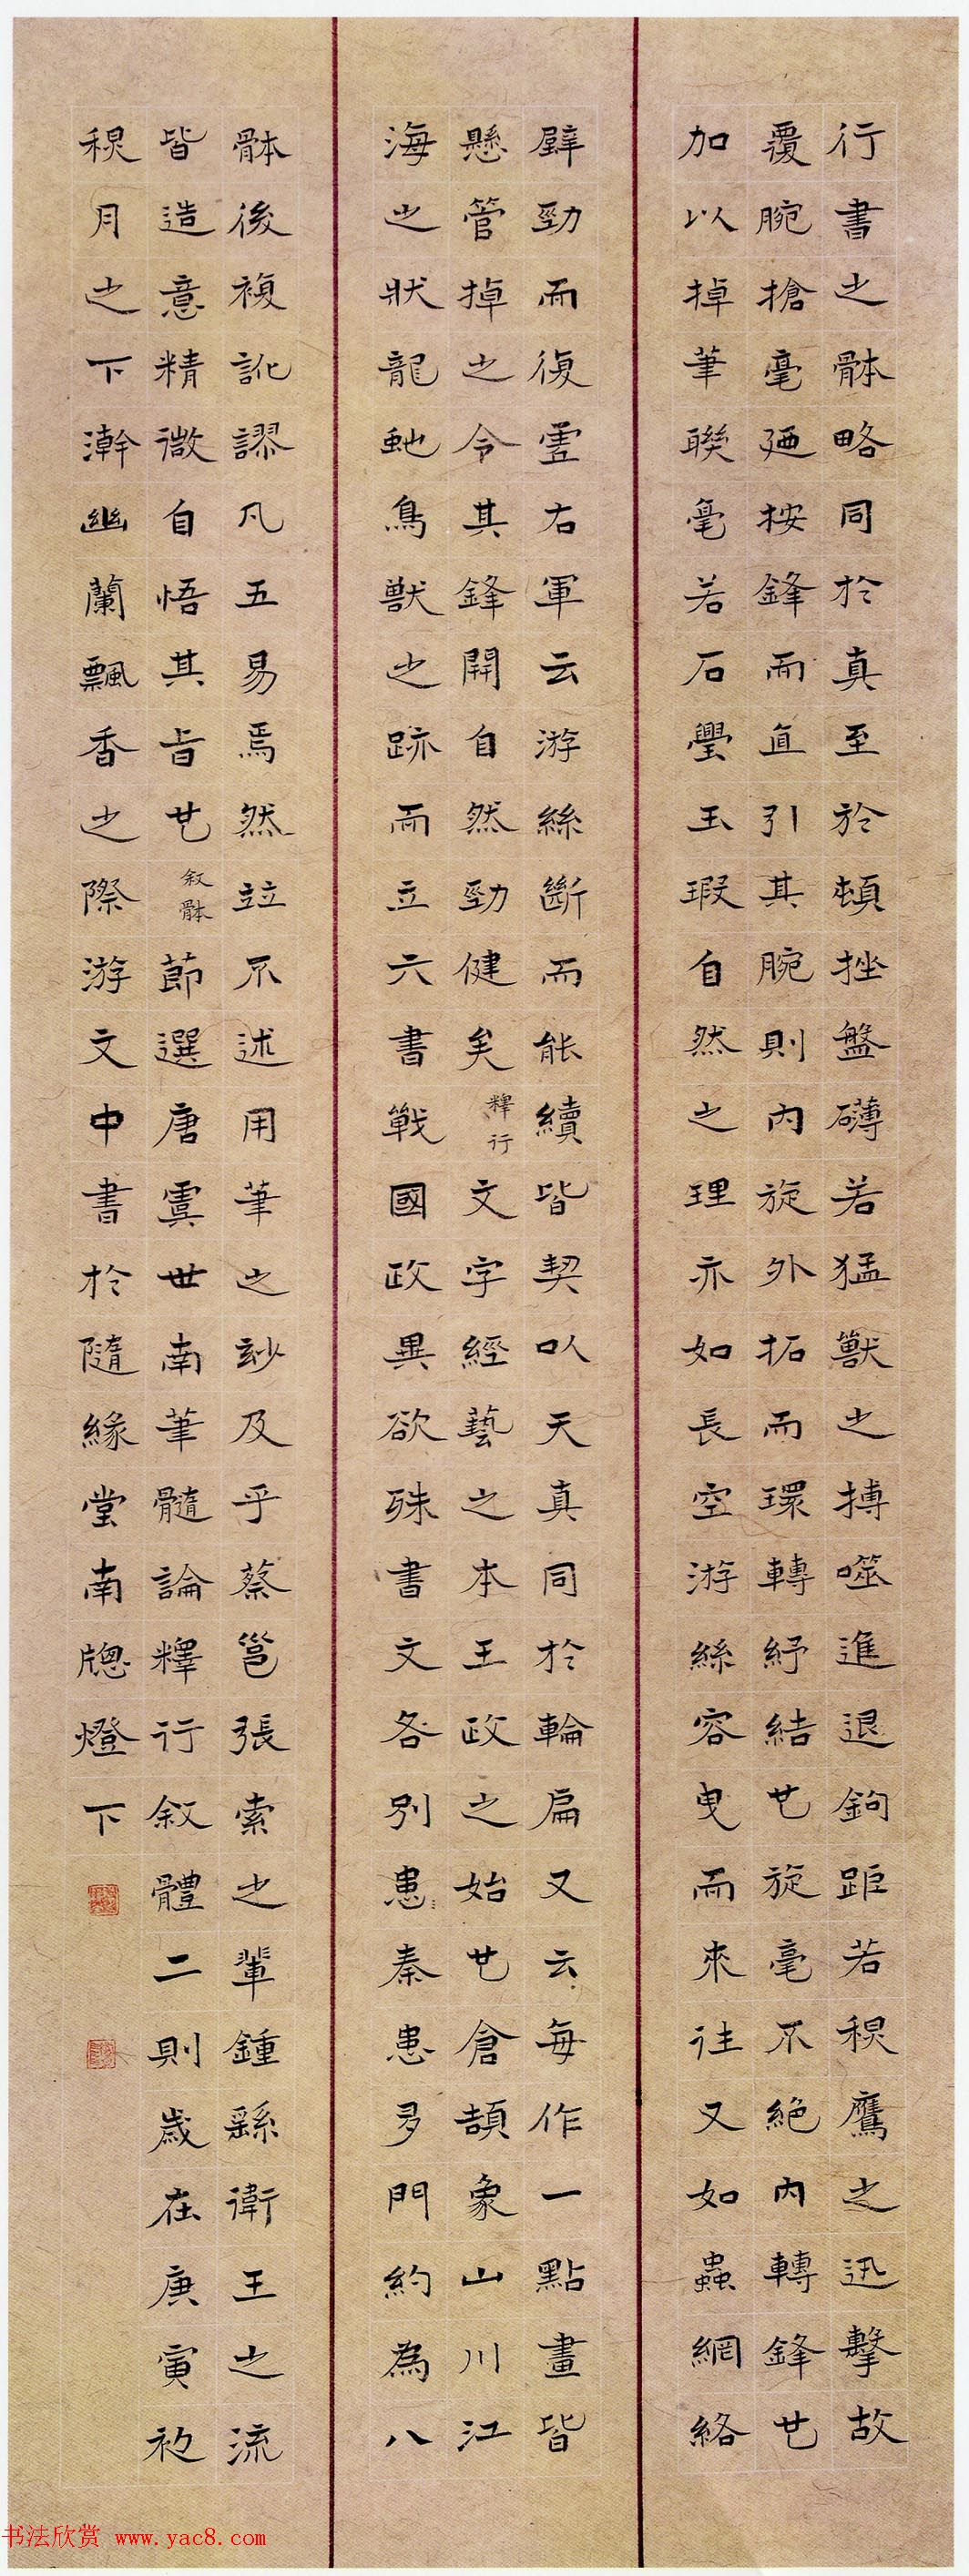 行書之骵略同於真至於頓挫盤礴若猛獸之搏噬進退鉤距若秋鷹之迅擊故
覆腕搶毫乃按鋒而直引其腕則内旋外拓而環轉紓結也旋毫不絕内轉鋒也
加以掉筆聯毫若石璺玉瑕自然之理亦如長空游絲容曳而來往又如蟲網絡
壁勁而復虛右軍云游絲斷而能續皆契以天真同於輪扁又云每作一點畫皆
懸管掉之令其鋒開自然勁健矣釋行文字經藝之本王政之始也倉頡象山川江
海之狀龍虵鳥獸之跡而立六書戰國政異俗殊書文各別患秦患多門約為八
骵後複訛謬凡五易焉然竝不述用筆之妙及乎蔡邕張索之輩鍾繇衛王之流
皆造意精微自悟其旨也叙骵節選唐虞世南筆髓論釋行叙體二則歲在庚寅初
秋月之下澣幽蘭飄香之際游文中書於隨緣堂南牕燈下
书法欣赏 www.yac8.com